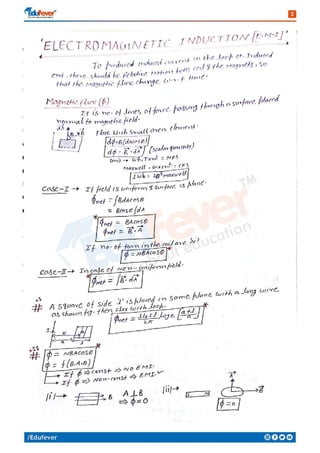 Edufever
2
'ELECTROMAGNETIC INDUCTION [E.M.I]'
To produced induced current in the loop or Induced
emf, there should be Relative motion betn coil & the magnets, so
that the magnetic flux change w.r.t time.
Magnetic flux (ϕ)
It is no. of lines of force passing through a surface placed
normal to magnetic field.
Flux with small area element
dϕ = B(dAcosθ)
dϕ = B⃗.dA⃗ (scalar quantity)
Unit → wb, T.m² = MKS
Maxwell = CGS
1 wb = 10⁸ maxwell
Case-I → If field is uniform & surface is plane.
ϕnet = ∫BdAcosθ
= Bcosθ∫dA
ϕnet = BAcosθ
ϕnet = B⃗.A⃗
If no. of turn in the coil are 'N'
ϕ = NBAcosθ
Case-II → In case of non-uniform field.
ϕnet = ∫B⃗.dA⃗
# A square of side 'l' is placed in same plane with a long wire
as shown fig. then flux with loop.
# ϕ = NBAcosθ
ϕ = f(B,A,θ)
→ If ϕ ⇒ const ⇒ NO EMI
→ If ϕ ⇒ Non-const ⇒ EMI ✓
|i| → B A⊥B
⇒ ϕ=0
|ii| → A⃗ B⃗
ϕ=0
/Edufever